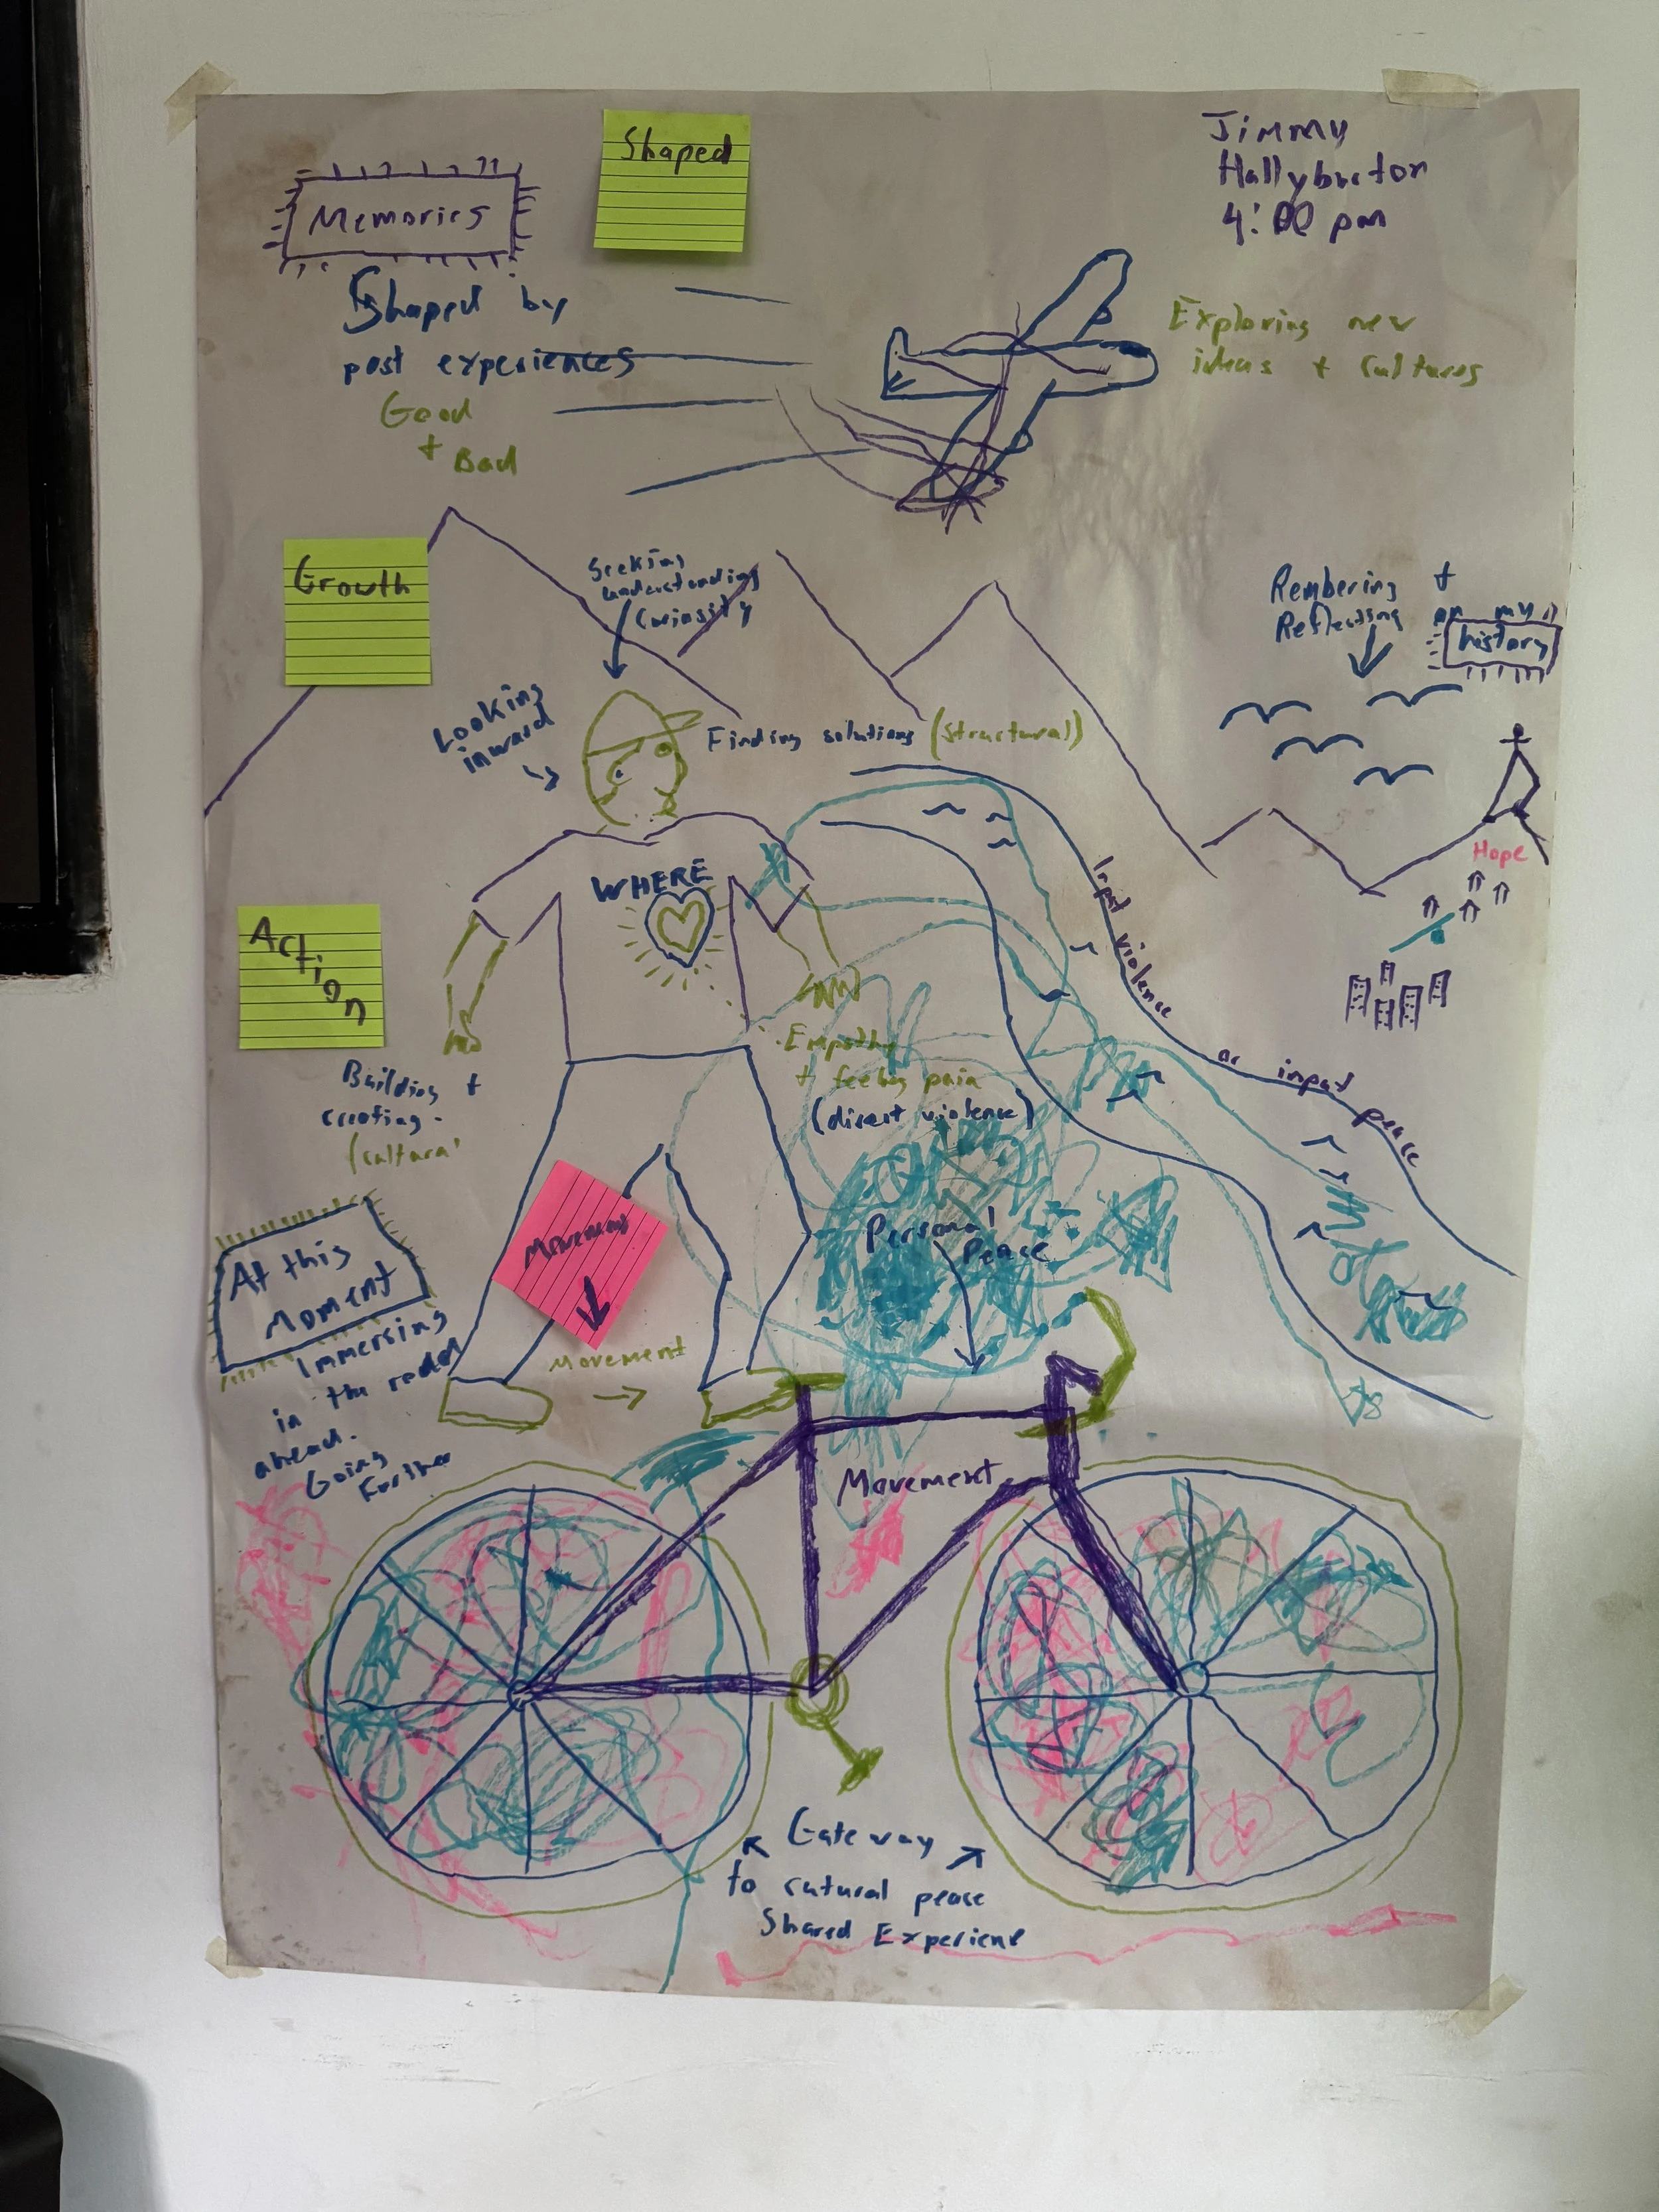 Shaped
Jimmy
Hallyburton
4:00 pm
Memories
Shaped by
past experiences
Good
+ Bad
Exploring new
ideas + cultures
Growth
Seeking
understanding
Curiosity
Rembering +
Reflecting on my
history
Looking
inward
Finding solutions (structural)
Hope
WHERE
Input violence or input peace
Action
Empathy
+ feeling pain
(direct violence)
Building +
creating.
(cultural
Personal
Peace
Movement
At this
Moment
Immersing
in the
ahead.
Going
Further
Movement
Movement
Gateway
to cutural peace
Shared Experienc